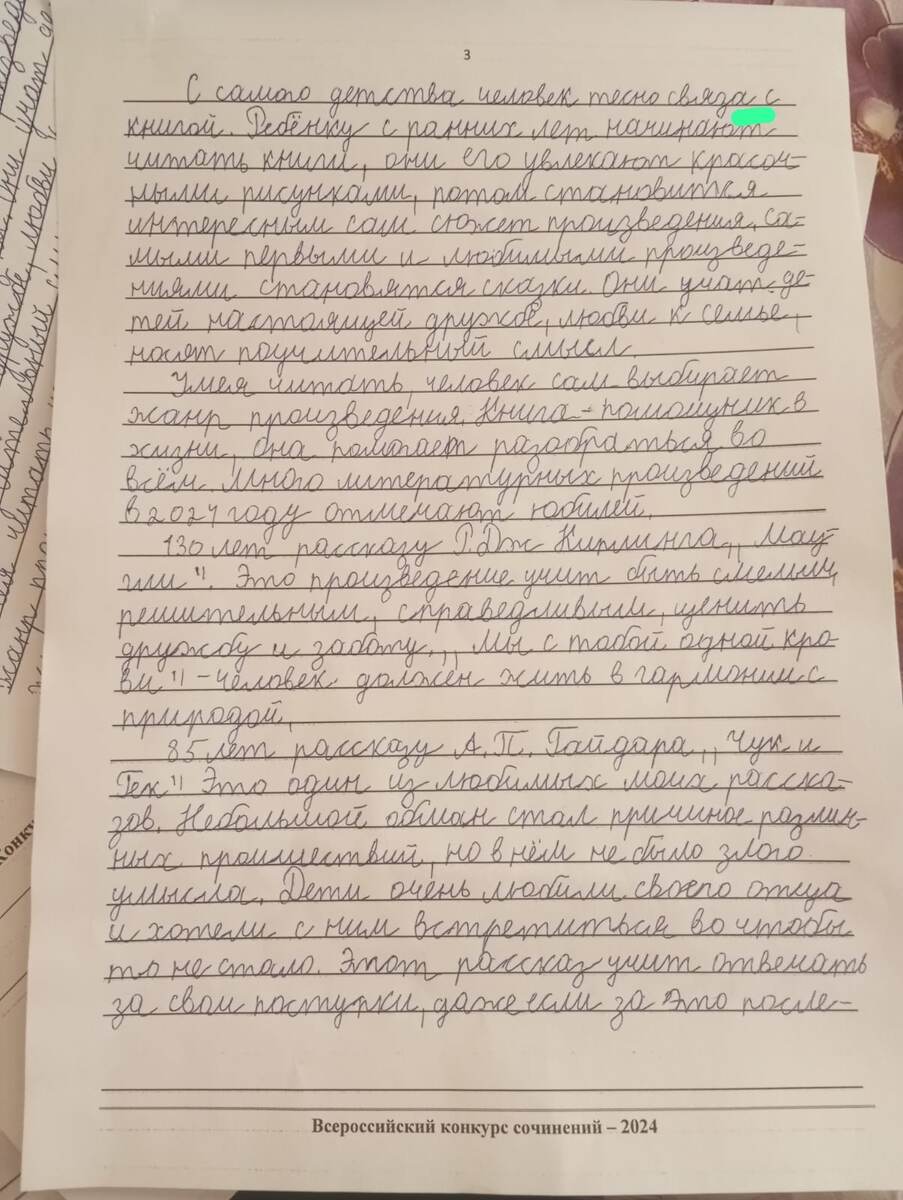 3
С самого детства человек тесно связа с
книгой. Ребёнку с ранних лет начинают
читать книги, они его увлекают красоч-
ными рисунками, потом становится
интересным сам сюжет произведения. Са-
мыми первыми и любимыми произведе-
ниями становятся сказки. Они учат де-
тей настоящей дружбе, любви к семье,
носят поучительный смысл.
Умея читать, человек сам выбирает
жанр произведения. Книга - помощник в
жизни, она помогает разобраться во
всём. Много литературных произведений
в 2024 году отмечают юбилей.
130 лет рассказу Р. Дж Киплинга „Мау-
гли". Это произведение учит быть смелым,
решительным, справедливым, ценить
дружбу и заботу. „Мы с тобой одной кро-
ви" - человек должен жить в гармонии с
природой.
85 лет рассказу А. П. Гайдара „Чук и
Гек" Это один из любимых моих расска-
зов. Небольшой обман стал причиное различ-
ных проишествий, но в нём не было злого
умысла. Дети очень любили своего отца
и хотели с ним встретиться во чтобы
то не стало. Этот рассказ учит отвечать
за свои поступки, даже если за это после-
Всероссийский конкурс сочинений – 2024